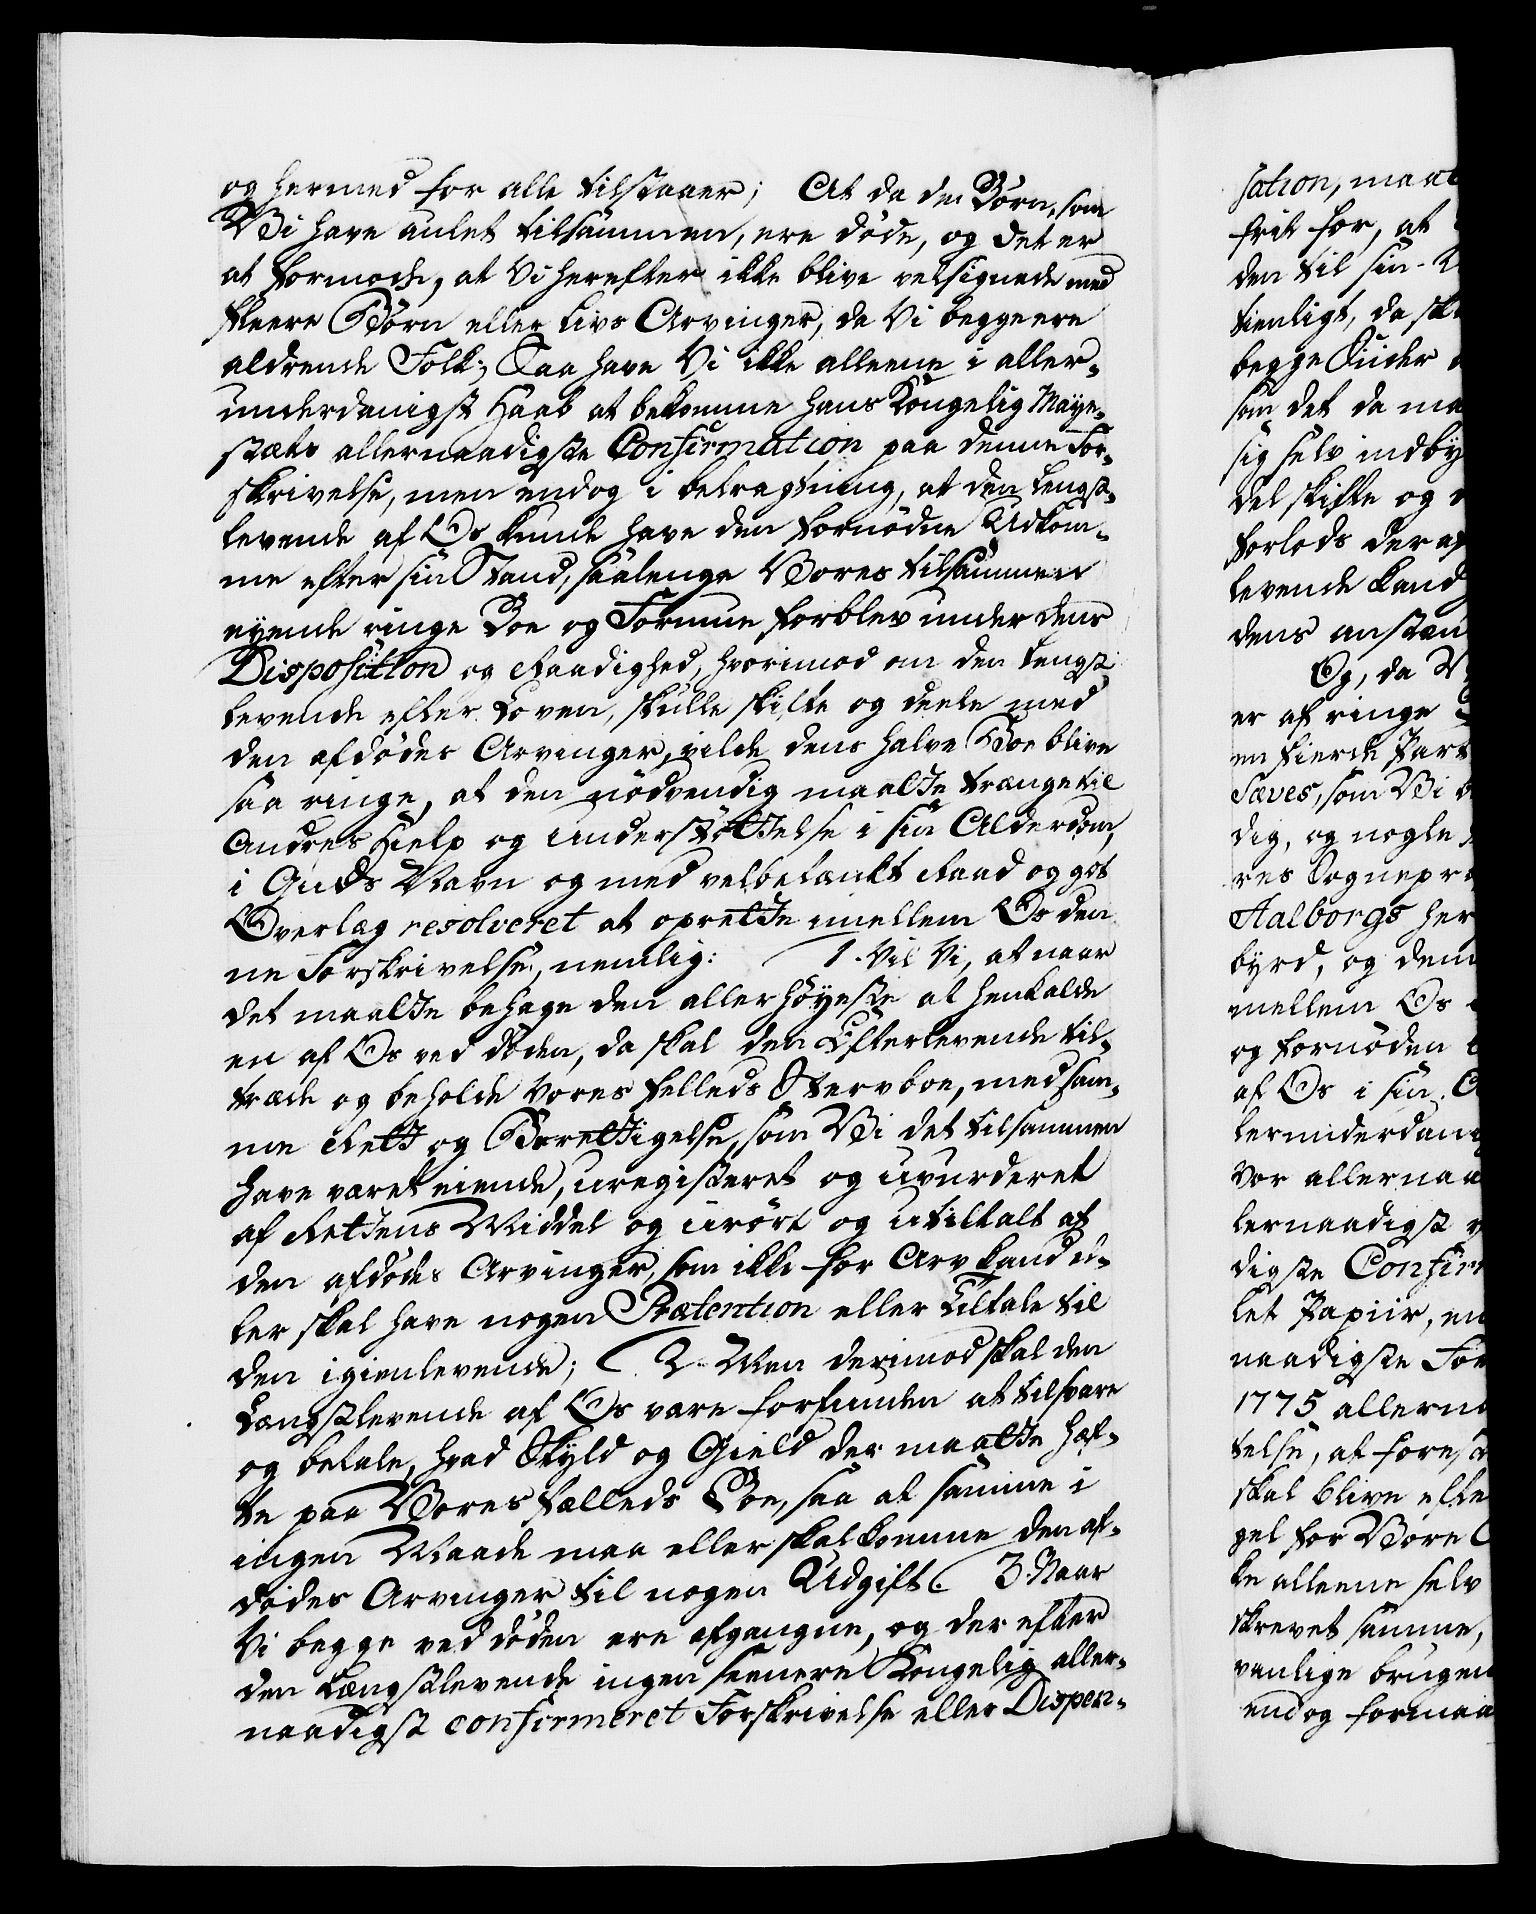 og hermed for alle tilstaaer; At da de Børn, som
Vi have aulet tilsammen, ere døde, og det er
at formode, at Vi herefter ikke blive velsignede med
fleere Børn eller Livs Arvinger, da Vi begge ere
aldrende Folk; Saa have Vi ikke alleene i aller-
underdanigst Haab at bekomme Hans Kongelig Maye-
stæts allernaadigste Confirmation paa denne For-
skrivelse, men endog i betragtning, at den Lengst-
levende af Os kunde have den fornødne Udkom-
me efter sin Stand, saalenge Vores tilsammen
eyende ringe Boe og Formue forblev under dens
Disposition og Raadighed, hvorimod om den Lengst
levende efter Loven, skulle skifte og deele med
den afdødes Arvinger, vilde dens halve Boe blive
saa ringe, at den nødvendig maatte trænge til
Andres Hielp og understøttelse i sin Alderdom,
i Guds Navn og med velbetænkt Raad og got
Overlæg resolveret at oprette imellem Os den
ne Forskrivelse, nemlig: 1. Vil Vi, at naar
det maatte behage den allerhøyeste at henkalde
en af Os ved døden, da skal den Efterlevende til-
træde og beholde Vores fælleds Sterboe, med sam-
me Rett og Berettigelse, som Vi det tilsammen
have været eiende, uregisteret og uvurderet
af Rettens Middel og urørt og utiltalt af
den afdødes Arvinger, som ikke for Arv kand el-
ler skal have nogen Prætention eller tiltale til
den igienlevende; 2. Men derimod skal den
Længstlevende af Os være forbunden at tilsvare
og betale, hvad Skyld og Gield der maatte hæf-
te paa Vores fælleds Boe, saa at samme i
ingen Maade maa eller skal komme den af-
dødes Arvinger til nogen Udgift. 3. Naar
Vi begge ved døden ere afgangne, og der efter
den Længstlevende ingen seenere Kongelig aller-
naadigst confirmeret Forskrivelse eller Dispen-
sation, maat
frit for, at
den til sin
tienligt, da sk
begge Sider
som det da ma
sig selv indby
del skifte og
forlods der af
levende kand
dens anstæn
Og, da V
er af ringe
en fierde Part
Sæves, som Vi b
dig, og nogle
res Sognepræ
Aalborgs her
byrd, og dem
mellem Os
og fornøden
af Os i sin A
lerunderdani
Vor allernaa
lernaadigst
digste Confir
let Papiir, en
naadigste For
1775 allerna
telse, at fores
skal blive efte
gel for Børe
ke alleene selv
skrevet samme,
vanlige brugen
endog formaa